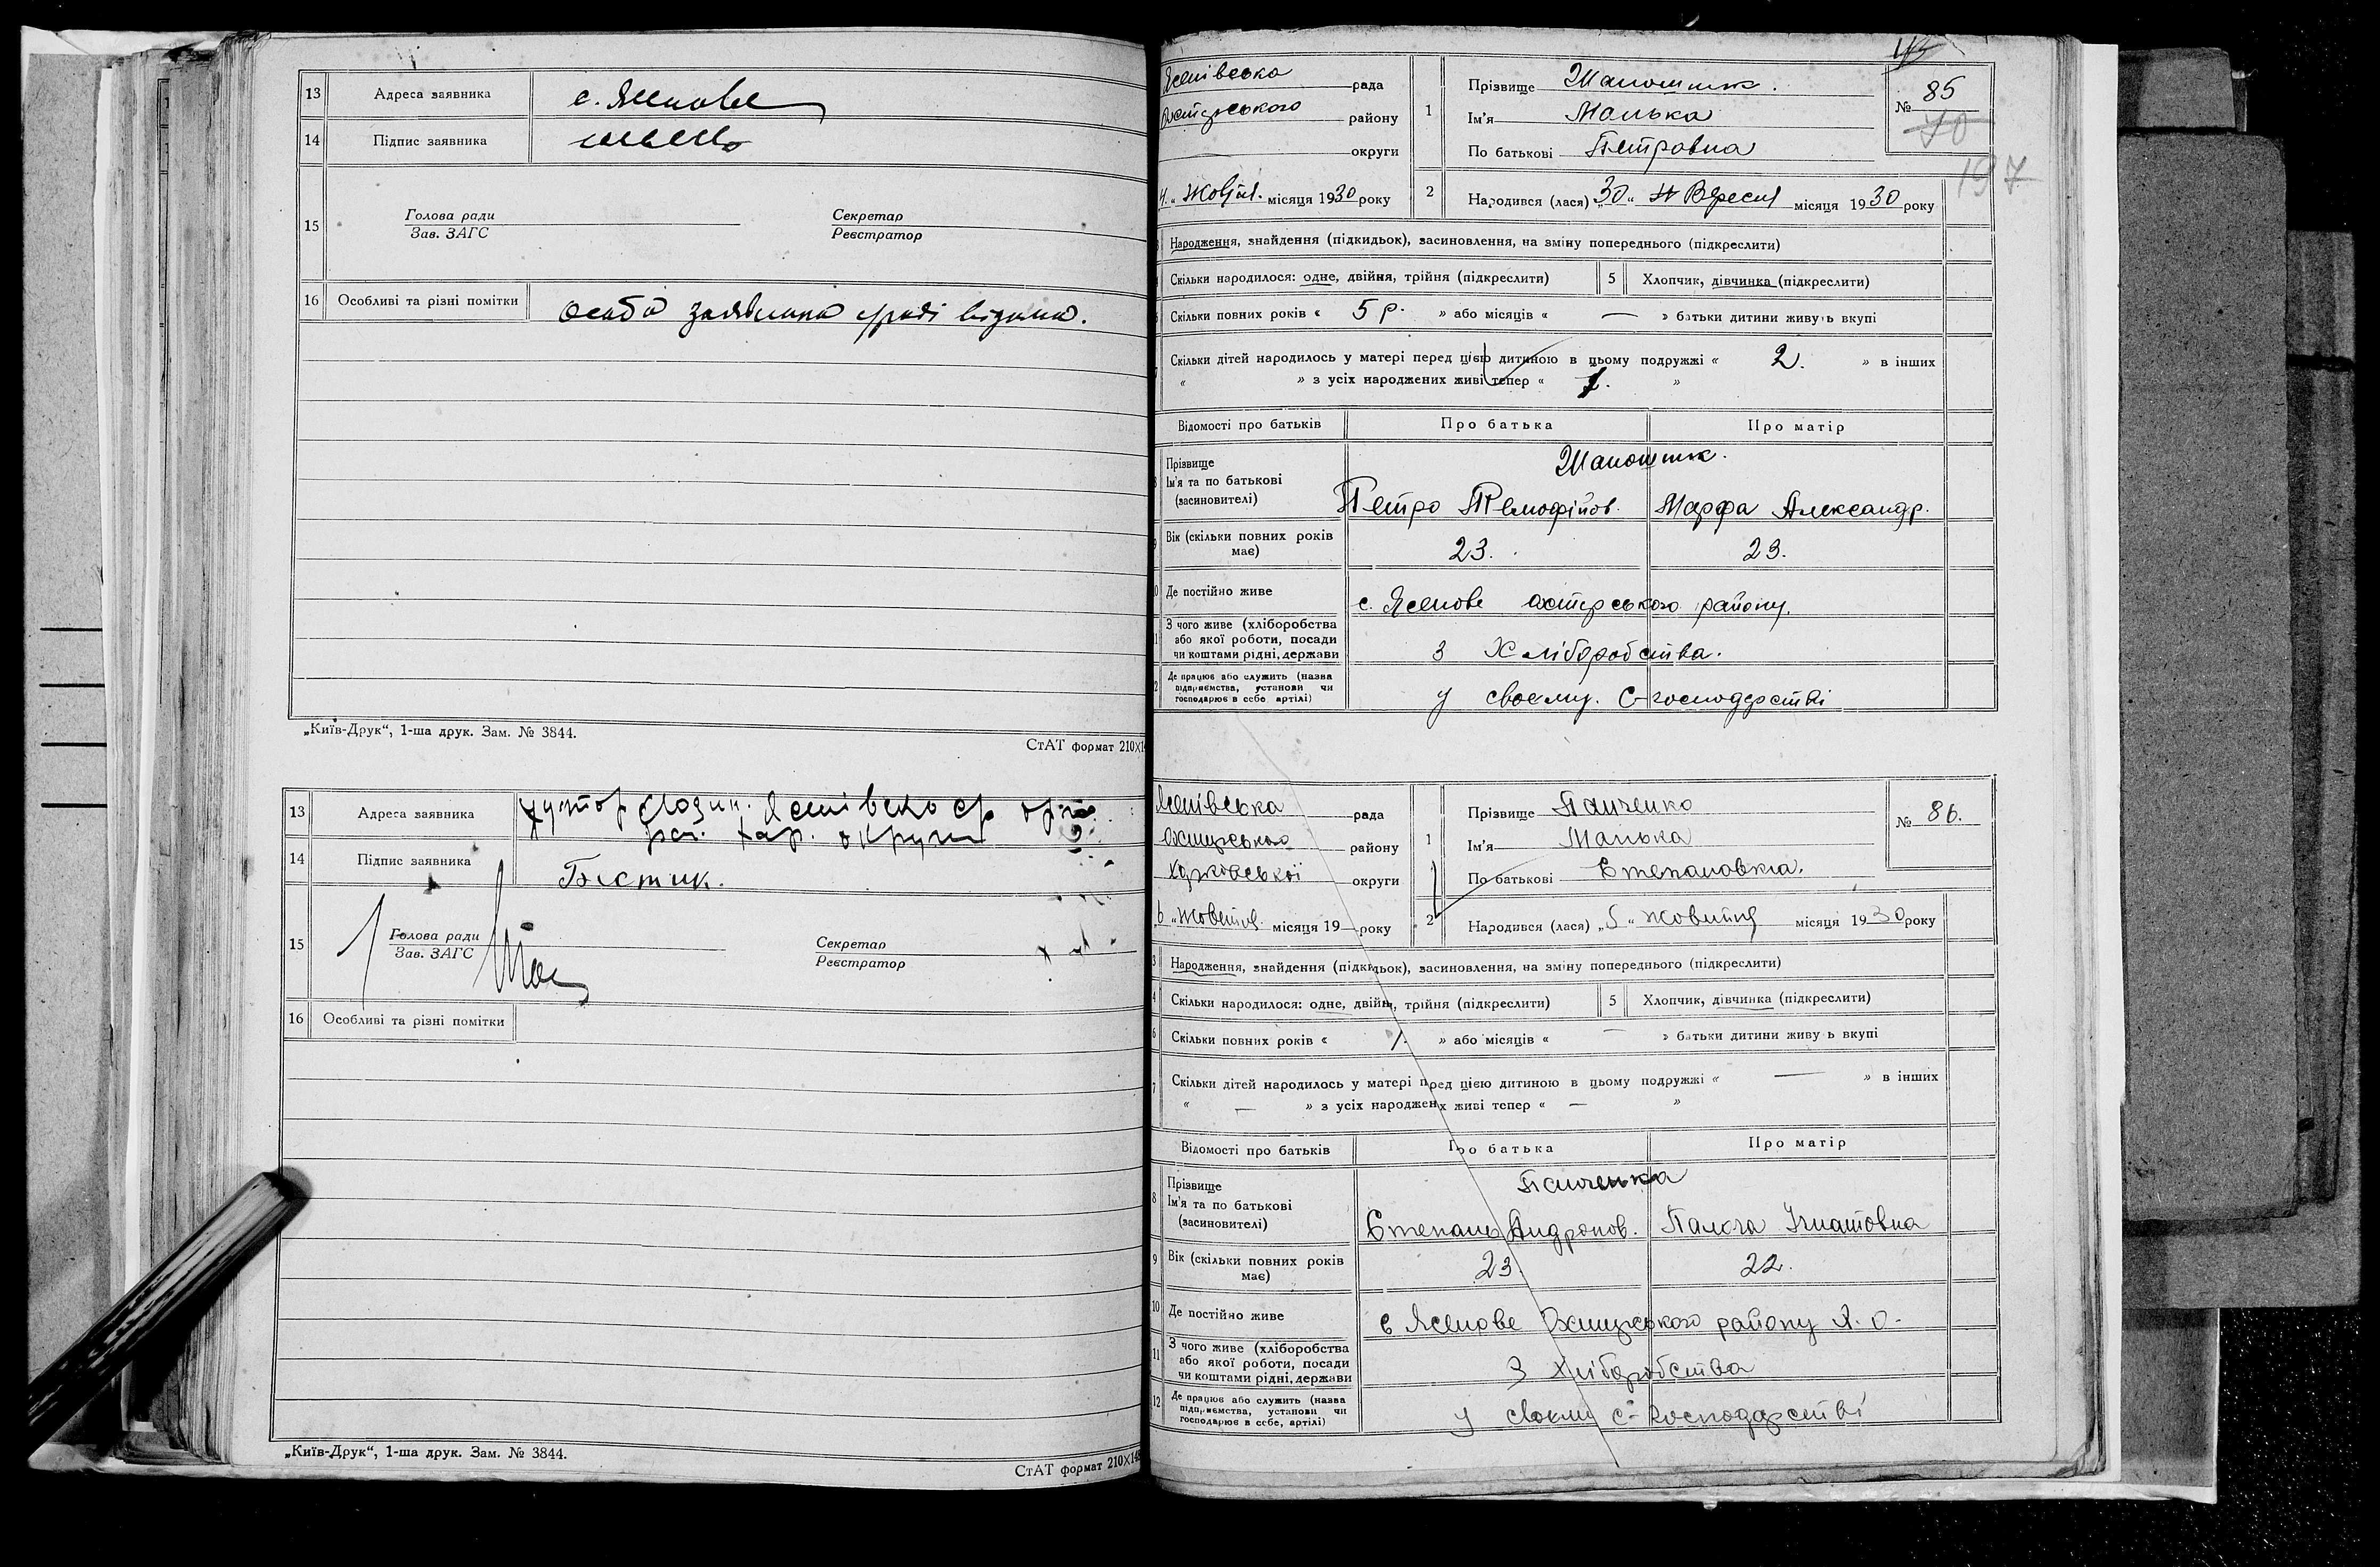 13 Адреса заявника с. Ясенове
14 Підпис заявника
15 Голова ради Секретар
Зав. ЗАГС Реєстратор
16 Особливі та різні помітки особа заявника у раді відома.
„Київ-Друк“, 1-ша друк. Зам. № 3844.
СтАТ формат 210X14
13 Адреса заявника хутор
округи
14 Підпис заявника
15 Голова ради Секретар
Зав. ЗАГС Реєстратор
16 Особливі та різні помітки
„Київ-Друк“, 1-ша друк. Зам. № 3844.
СтАТ формат 210X148
Ясенівська рада
району
округи
1 Прізвище
Ім'я Манька
По батькові Петровна
№ 85
70
197
4. „ Жовтн. місяця 1930 року
2 Народився (лася) „30“ Вересня місяця 1930 року
Народження, знайдення (підкидьок), засиновлення, на зміну попереднього (підкреслити)
Скільки народилося: одне, двійня, трійня (підкреслити) 5 Хлопчик, дівчинка (підкреслити)
Скільки повних років « 5 р. » або місяців « — » батьки дитини живуть вкупі
Скільки дітей народилось у матері перед цією дитиною в цьому подружжі « 2. » в інших
« » з усіх народжених живі тепер « 1. »
Відомості про батьків Про батька Про матір
Прізвище
Ім'я та по батькові
(засиновителі)
Петро Марфа Александр.
Вік (скільки повних років має) 23. 23.
Де постійно живе с. Ясенове району.
З чого живе (хліборобства або якої роботи, посади чи коштами рідні, держави з Хліборобства.
Де працює або служить (назва підприємства, установи чи господарює в себе артілі) у своєму. С-господарстві
Ясенівська рада
району
Харківської округи
1 Прізвище Панченко
Ім'я Манька
По батькові Степановна.
№ 86.
6 „ Жовтня місяця 19— року
2 Народився (лася) „5“ Жовтня місяця 1930 року
3 Народження, знайдення (підкидьок), засиновлення, на зміну попереднього (підкреслити)
4 Скільки народилося: одне, двійня, трійня (підкреслити) 5 Хлопчик, дівчинка (підкреслити)
6 Скільки повних років « 1. » або місяців « — » батьки дитини живуть вкупі
7 Скільки дітей народилось у матері перед цією дитиною в цьому подружжі « — » в інших
« — » з усіх народжених живі тепер « — »
Відомості про батьків Про батька Про матір
8 Прізвище
Ім'я та по батькові
(засиновителі)
Панченка
Степань Андронов. Игнатовна
9 Вік (скільки повних років має) 23. 22.
10 Де постійно живе с Ясенове району Х. о.
11 З чого живе (хліборобства або якої роботи, посади чи коштами рідні, держави З хліборобства
12 Де працює або служить (назва підприємства, установи чи господарює в себе, артілі) у своєму с-господарстві